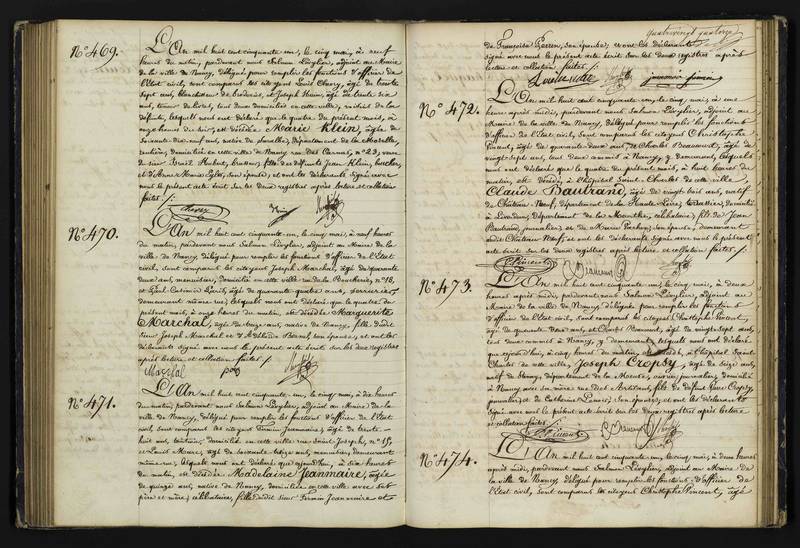 N° 469.
L'An mil huit cent cinquante-un, le cinq mai, à neuf
heures du matin, pardevant nous Salmon Lévylier, adjoint au Maire
de la ville de Nancy, délégué pour remplir les fonctions d'officier de
l'Etat civil, sont comparus les citoyens Louis
sept ans, et Joseph âgé de trente six
ans, tous deux domiciliés en cette ville, de la
défunte, lesquels nous ont déclaré que le quatre du présent mois, à
onze heures du soir, est décédée Marie Klein, âgée de
soixante-dix-neuf ans, native de département de la Moselle,
domiciliée en cette ville de Nancy rue des Carmes, n° 23, veuve
de sieur Hubert, fille des défunts Jean Klein,
et d'Anne son épouse, et ont les déclarants signé avec
nous le présent acte écrit sur les deux registres après lecture et collation
faites. /.
N° 470.
L'An mil huit cent cinquante-un, le cinq mai, à neuf heures
du matin, pardevant nous Salmon Lévylier, adjoint au Maire de la
ville de Nancy, délégué pour remplir les fonctions d'officier de l'Etat
civil, sont comparus les citoyens Joseph Marchal, âgé de quarante
deux ans, menuisier, domicilié en cette ville rue de la Boucherie, n° 18,
et âgé de quarante quatre ans, serrurier,
demeurant même rue; lesquels nous ont déclaré que le quatre du
présent mois, à onze heures du matin, est décédée Marguerite
Marchal, âgée de treize ans, native de Nancy, fille dudit
sieur Joseph Marchal et d' son épouse, et ont les
déclarants signé avec nous le présent acte écrit sur les deux registres
après lecture et collation faites. /.
Marchal
N° 471.
L'An mil huit cent cinquante-un, le cinq mai, à dix heures
du matin, pardevant nous Salmon Lévylier, adjoint au Maire de la
ville de Nancy, délégué pour remplir les fonctions d'officier de l'Etat
civil, sont comparus les citoyens Firmin Jeanmaire, âgé de trente-
huit ans, domicilié en cette ville rue Saint-Joseph, n° 15,
et Louis âgé de soixante-treize ans, menuisier, demeurant
même rue; lesquels nous ont déclaré que aujourd'hui, à six heures
du matin, est décédée Madelaine Jeanmaire, âgée
de quinze ans, native de Nancy, domiciliée en cette ville avec ses
père et mère, célibataire, fille dudit sieur Firmin Jeanmaire et
quatrevingt quatorze
de Françoise Perrin, son épouse; et ont les déclarants
signé avec nous le présent acte écrit sur les deux registres après
lecture et collation faites.
N° 472.
L'An mil huit cent cinquante-un, le cinq mai, à une
heure après midi, pardevant nous Salmon Lévylier, adjoint au
Maire de la ville de Nancy, délégué pour remplir les fonctions
d'officier de l'Etat civil, sont comparus les citoyens Christophe
Pincent, âgé de quarante-deux ans, et Charles Beauvent, âgé de
vingt-sept ans, tous deux commis à Nancy, y demeurant, lesquels
nous ont déclaré que le quatre du présent mois, à huit heures du
matin, est décédé, à l'hôpital Saint-Charles de cette ville,
Claude Bautrand, âgé de vingt trois ans, natif
de Château-Neuf, département de la Haute Loire,
à département de la Meurthe, célibataire, fils de Jean
Bautrand, journalier, et de Marie son épouse, demeurant
audit Château-Neuf, et ont les déclarants signé avec nous le présent
acte écrit sur les deux registres après lecture et collation faites. /.
CPincent
Beauvent
N° 473.
L'An mil huit cent cinquante-un, le cinq mai, à deux
heures après midi, pardevant nous Salmon Lévylier, adjoint au
Maire de la ville de Nancy, délégué pour remplir les fonctions
d'officier de l'Etat civil, sont comparus les citoyens Christophe Pincent,
âgé de quarante-deux ans, et Charles Beauvent, âgé de vingt-sept ans,
tous deux commis à Nancy, y demeurant, lesquels nous ont déclaré
que aujourd'hui, à cinq heures du matin, est décédé, à l'hôpital Saint
Charles de cette ville, Joseph Cropsy, âgé de seize ans,
natif de département de la Meurthe, journalier, domicilié
à Nancy avec sa mère rue des Artisans, fils de défunt Cropsy,
journalier, et de Catherine son épouse; et ont les déclarants
signé avec nous le présent acte écrit sur les deux registres après lecture
et collation faites. /.
CPincent
Beauvent
N° 474.
L'An mil huit cent cinquante-un, le cinq mai, à deux heures
après midi, pardevant nous Salmon Lévylier, adjoint au Maire de
la ville de Nancy, délégué pour remplir les fonctions d'officier de
l'Etat civil, sont comparus les citoyens Christophe Pincent, âgé